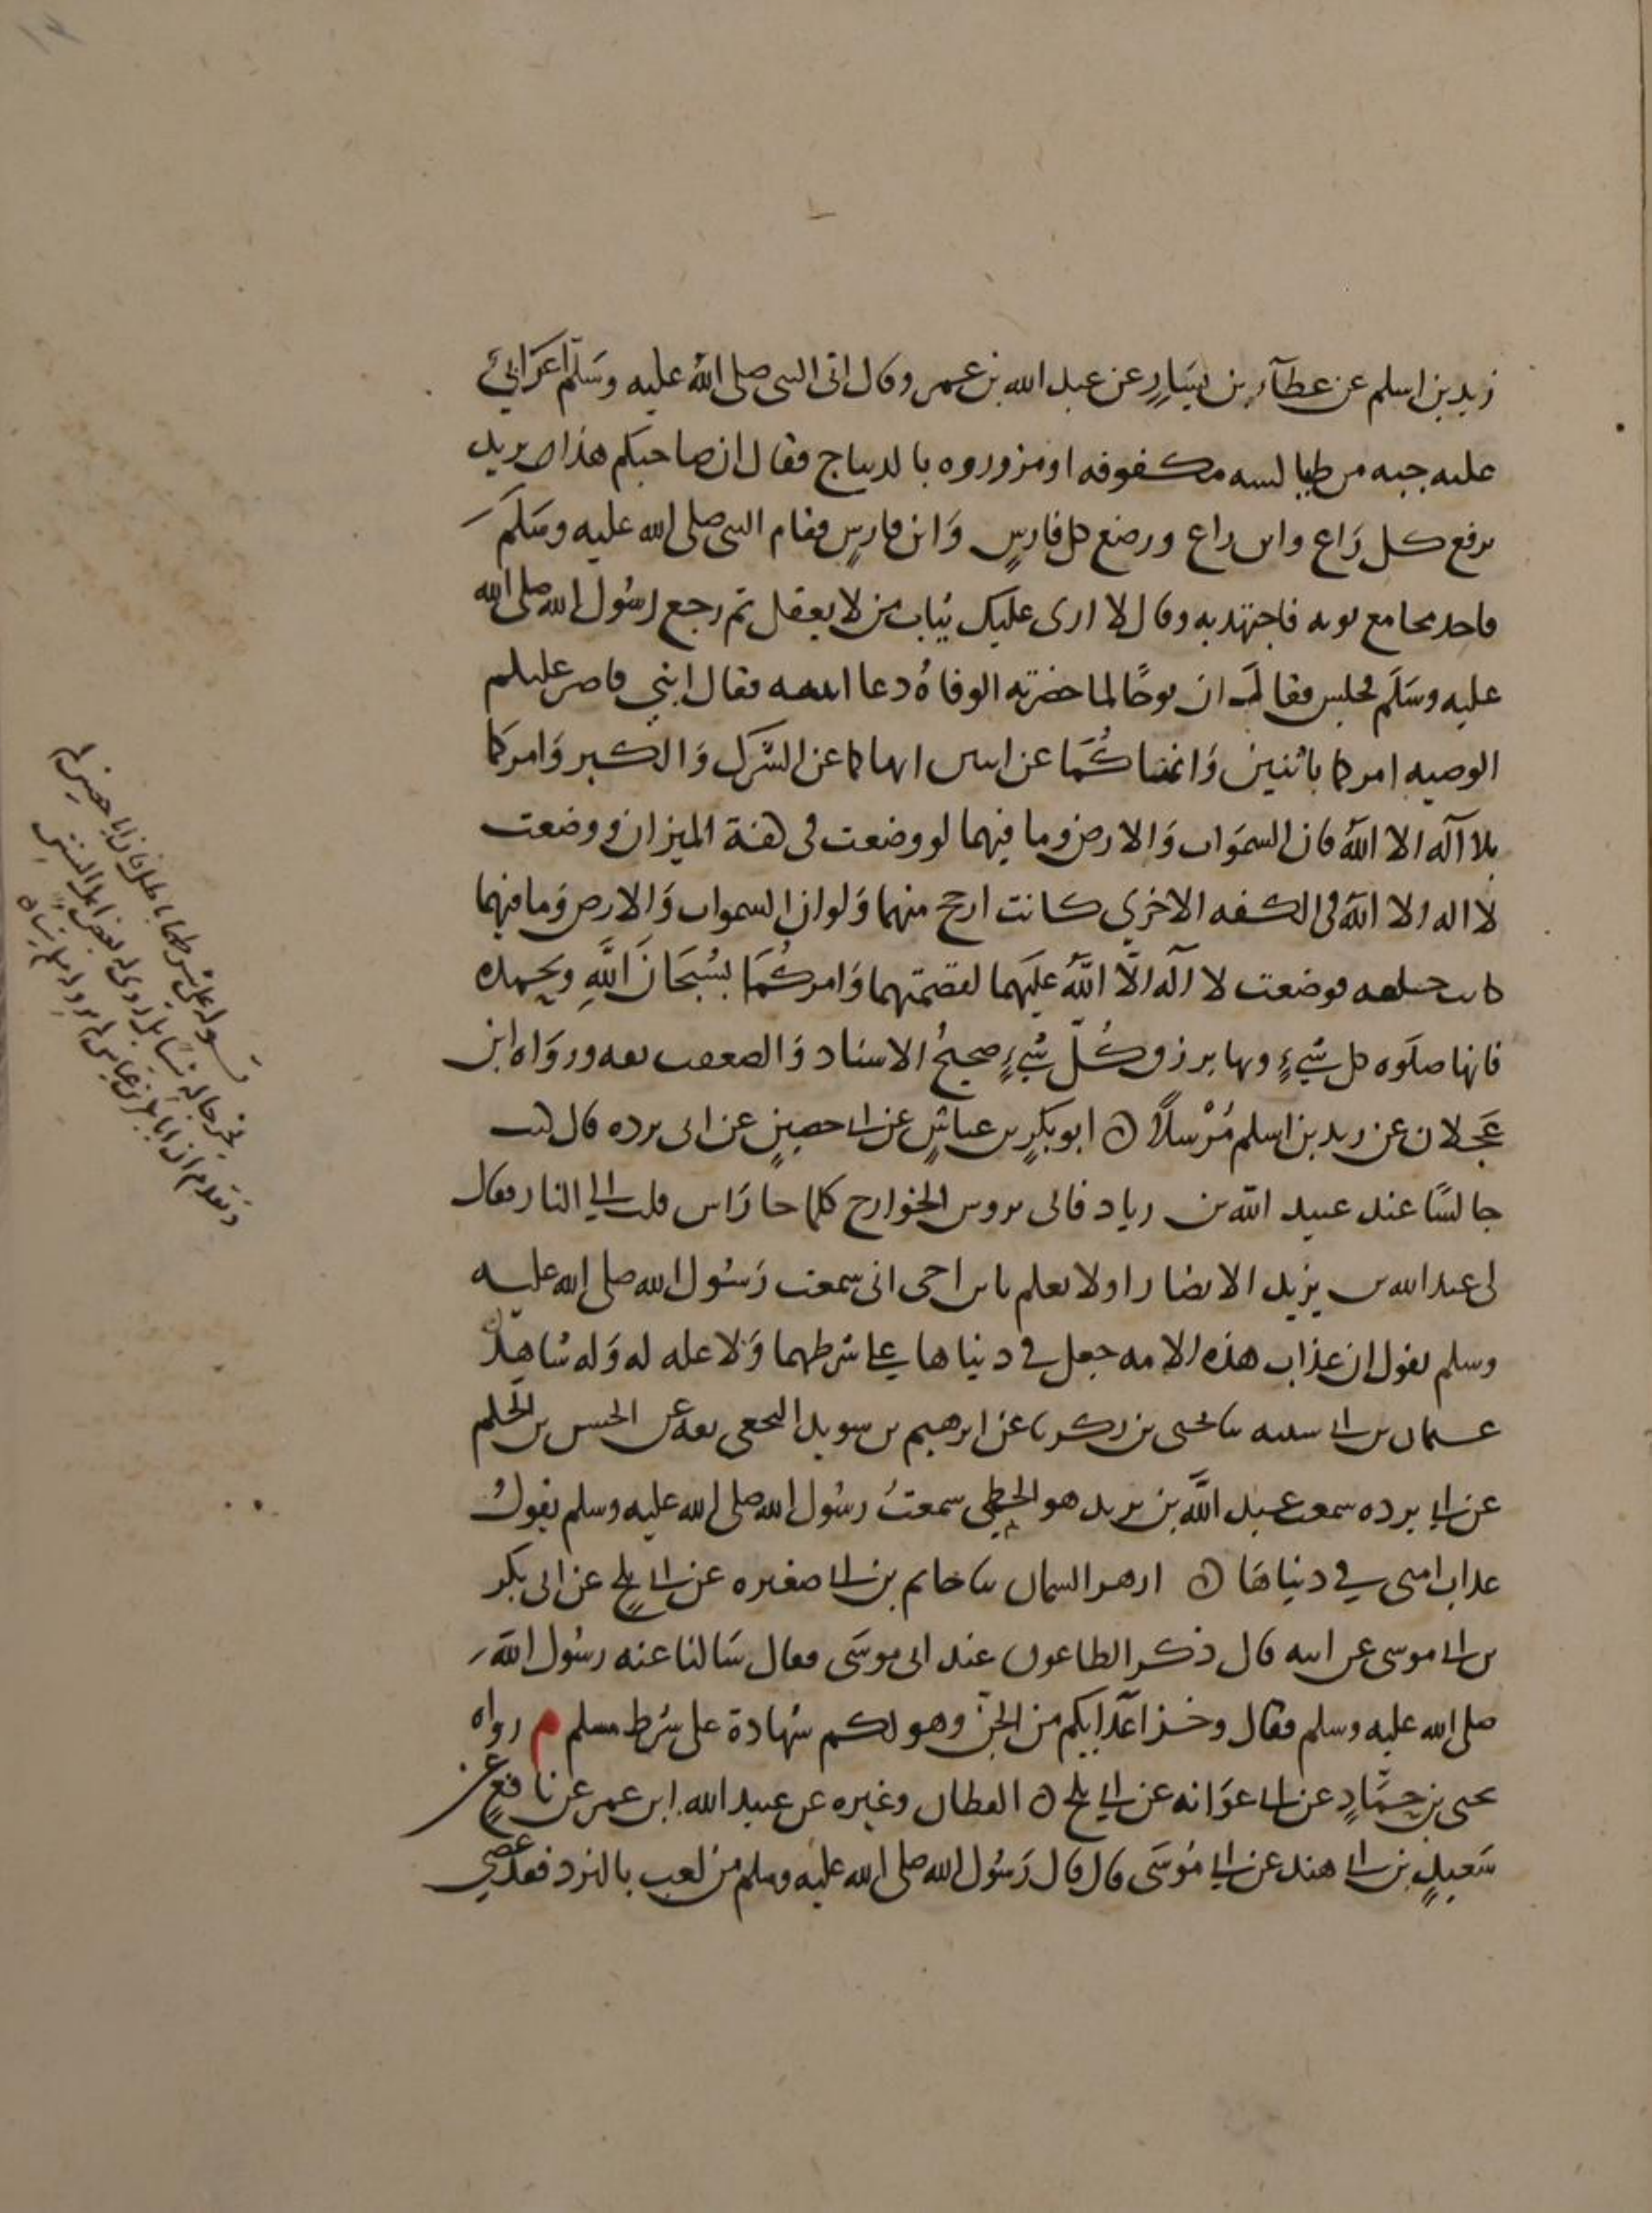 زيد بن اسلم عن عطآء بن يسارٍ عن عبد الله بن عمر وقال اتى النبى صلى الله عليه وسلم اعرابيٌ
عليه جبه من طيالسه مكفوفه او مزروروه بالديباج فقال ان صاحبكم هذا يريد
يرفع كل راع وابن راع ويضع كل فارسٍ وابن فارسٍ فقام النبى صلى الله عليه وسلم
فاخذ بمجامع ثوبه فاجتهد به وقال لا ارى عليك ثياب من لا يعقل ثم رجع رسول الله صلى الله
عليه وسلم فجلس فقال ان نوحًا لما حضرته الوفاةُ دعا ابنيه فقال انى قاصر عليكم
الوصيه امركما باثنين وانهاكُما عن اثنين انهاكما عن الشرك والكبر وامركما
بلا آله الا الله فان السموات والارض وما فيهما لو وضعت فى كفة الميزان ووضعت
لا اله الا الله فى الكفه الاخرى كانت ارجح منهما ولو ان السموات والارض وما فيهما
كانت حلقه فوضعت لا آله الّا اللّه عليهما لقصمتهما وامركُما بسُبحان اللّهِ وبحمده
فانها صلوه كل شيءٍ وبها يرزق كُلّ شيءٍ صحيحُ الاسناد والصقعب ثقه ورواه ابن
عجلان عن زيد بن اسلم مُرْسلًا ٥ ابو بكرٍ بن عياشٍ عن ابى حصينٍ عن ابى برده قال كنت
جالسًا عند عبيد الله بن زياد فاتى بروس الخوارج كلما جا راس قلت الى النار فقال
لى عبد الله بن يزيد الانصارا ولا تعلم يابن اخى انى سمعت رسُول الله صلى الله عليه
وسلم يقول ان عذاب هذه الامه جعل في دنياها على شرطهما ولا عله له وله شاهدٌ
عثمان بن ابى شيبه ثنا يحيى بن زكريا عن ابرهيم بن سويد النخعى ثقه عن الحسن بن الحكم
عن ابى برده سمعت عبد الله بن يزيد هو الخطمى سمعتُ رسُول الله صلى الله عليه وسلم يقولُ
عذاب امتى في دنياها ٥ ازهر السمان ثنا حاتم بن ابى صغيره عن ابى بلجٍ عن ابى بكر
بن ابى موسى عن ابيه قال ذكر الطاعون عند ابى موسى فقال سالنا عنه رسُول الله
صلى الله عليه وسلم فقال وخز اعدايكم من الجنّ وهو لكم شهادة على شرط مسلم م رواه
يحيى بن حمّادٍ عن ابى عوانه عن ابى بلج ٥ القطان وغيره عن عبيد الله ابن عمر عن نافعٍ عن
سعيدٍ بن ابى هند عن ابى موسى قال قال رسُول الله صلى الله عليه وسلم من لعب بالنرد فقد عصى